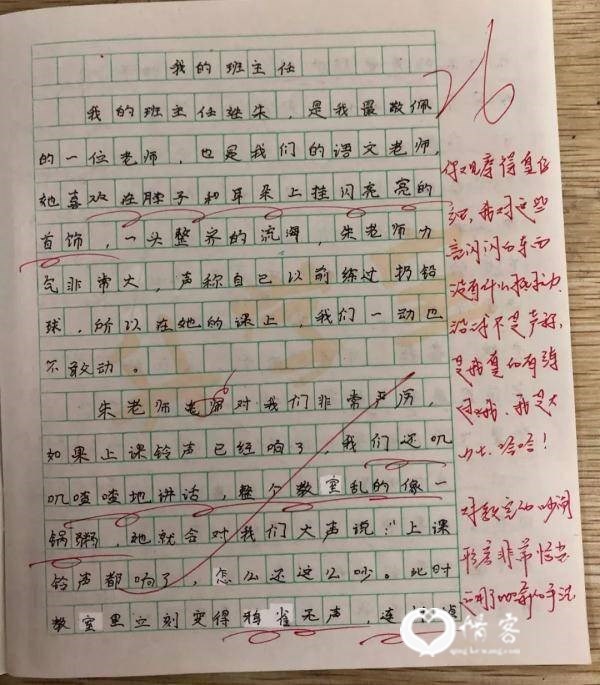 我的班主任
我的班主任姓朱，是我最敬佩
的一位老师，也是我们的语文老师，
她喜欢在脖子和耳朵上挂闪亮亮的
首饰，一头整齐的流海，朱老师力
气非常大，声称自己以前练过扔铅
球，所以在她的课上，我们一动也
不敢动。
朱老师老师对我们非常严厉，
如果上课铃声已经响了，我们还叽
叽喳喳地讲话，整个教室乱的像一
锅粥，她就会对我们大声说："上课
铃声都响了，怎么还这么吵。此时
教室里立刻变得鸦雀无声，连
26
你观察得真仔
我对这些
闪闪的东西
没有什么抵抗力
不是声称，
是我真的有练
我是大
力士，哈哈！
对教室的吵闹
形容非常恰当
运用了比喻的手法
借客
qing ke wang.com